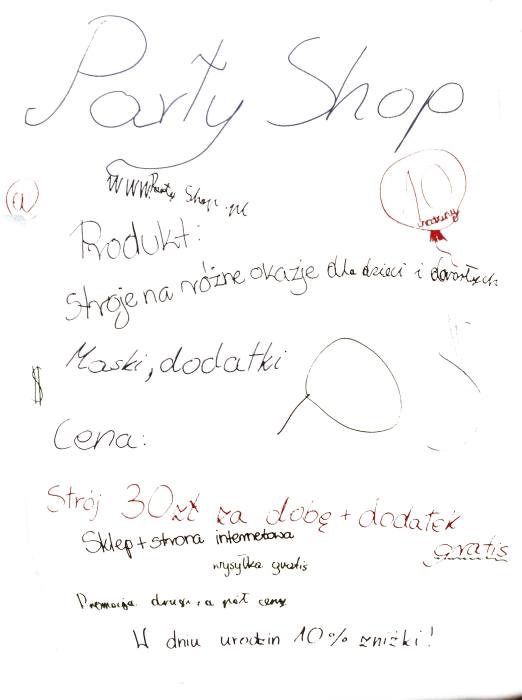 Party Shop
www.Party Shop.pl
@
10
urodziny
Produkt:
Stroje na różne okazje dla dzieci i dorosłych
Maski, dodatki
$
Cena:
Strój 30zł za dobę + dodatek
gratis
Sklep + strona internetowa
wysyłka gratis
Promocja druga pół ceny
W dniu urodzin 10% zniżki!